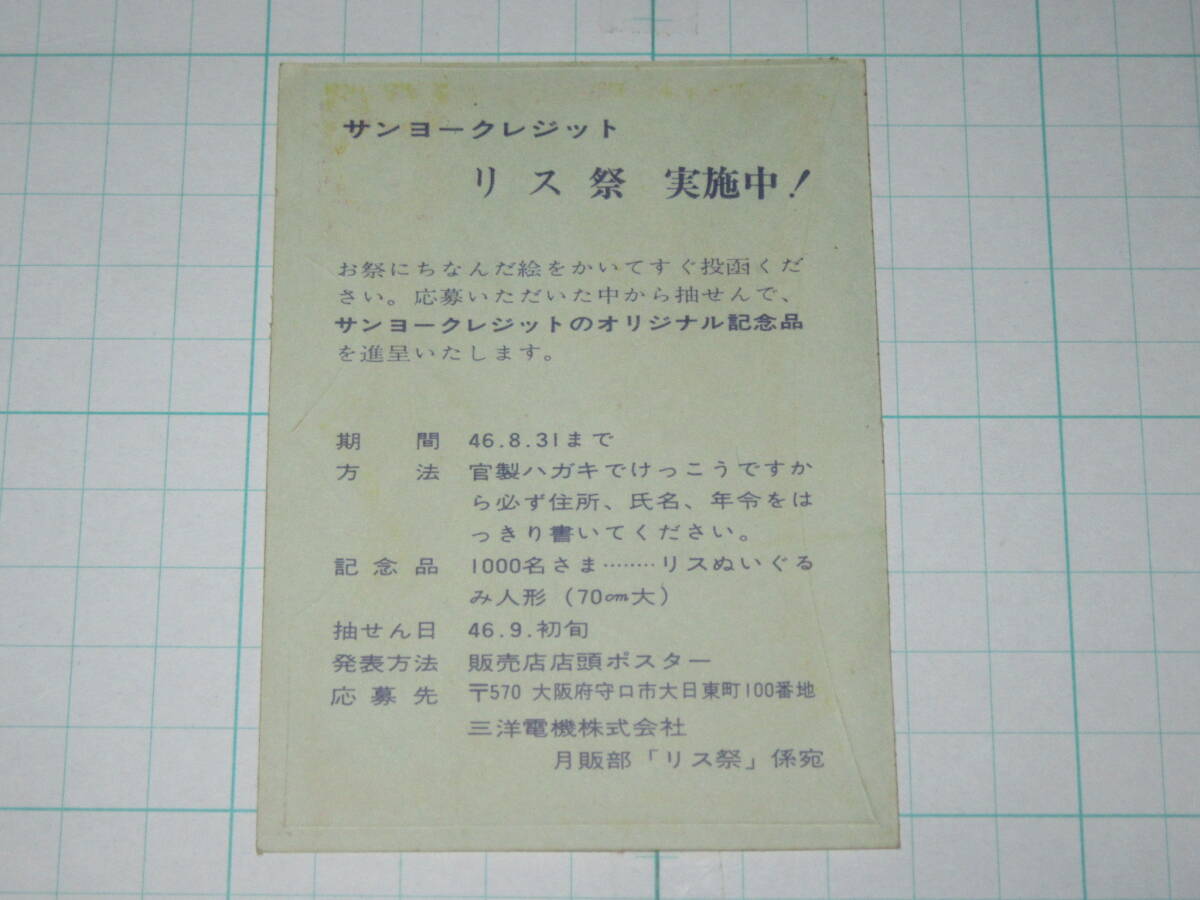 サンヨークレジット
リス祭 実施中!
お祭にちなんだ絵をかいてすぐ投函くだ
さい。応募いただいた中から抽せんで、
サンヨークレジットのオリジナル記念品
を進呈いたします。
期間 46.8.31まで
方法 官製ハガキでけっこうですか
ら必ず住所、氏名、年令をは
っきり書いてください。
記念品 1000名さま………リスぬいぐる
み人形(70cm大)
抽せん日 46.9.初旬
発表方法 販売店店頭ポスター
応募先 〒570 大阪府守口市大日東町100番地
三洋電機株式会社
月販部「リス祭」係宛